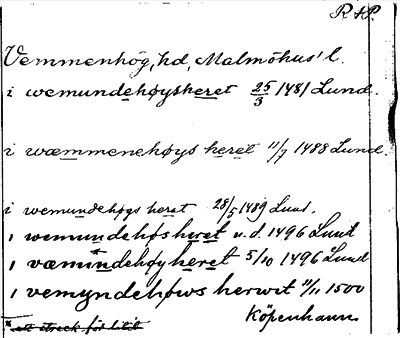 R & P.
Vemmenhög, hd, Malmöhus' l.
i wemundehøysheret 25/3 1481 Lund.
i wæmmenehøys heret 11/7 1488 Lund.
i wemundehøgs herat 28/5 1489 Lund.
i wemundehøsheret u.d. 1496 Lund
i væmundehøyheret 5/10 1496 Lund
i vemyndehøws herwit 11/11 1500
Köpenhamn
ett streck för litet